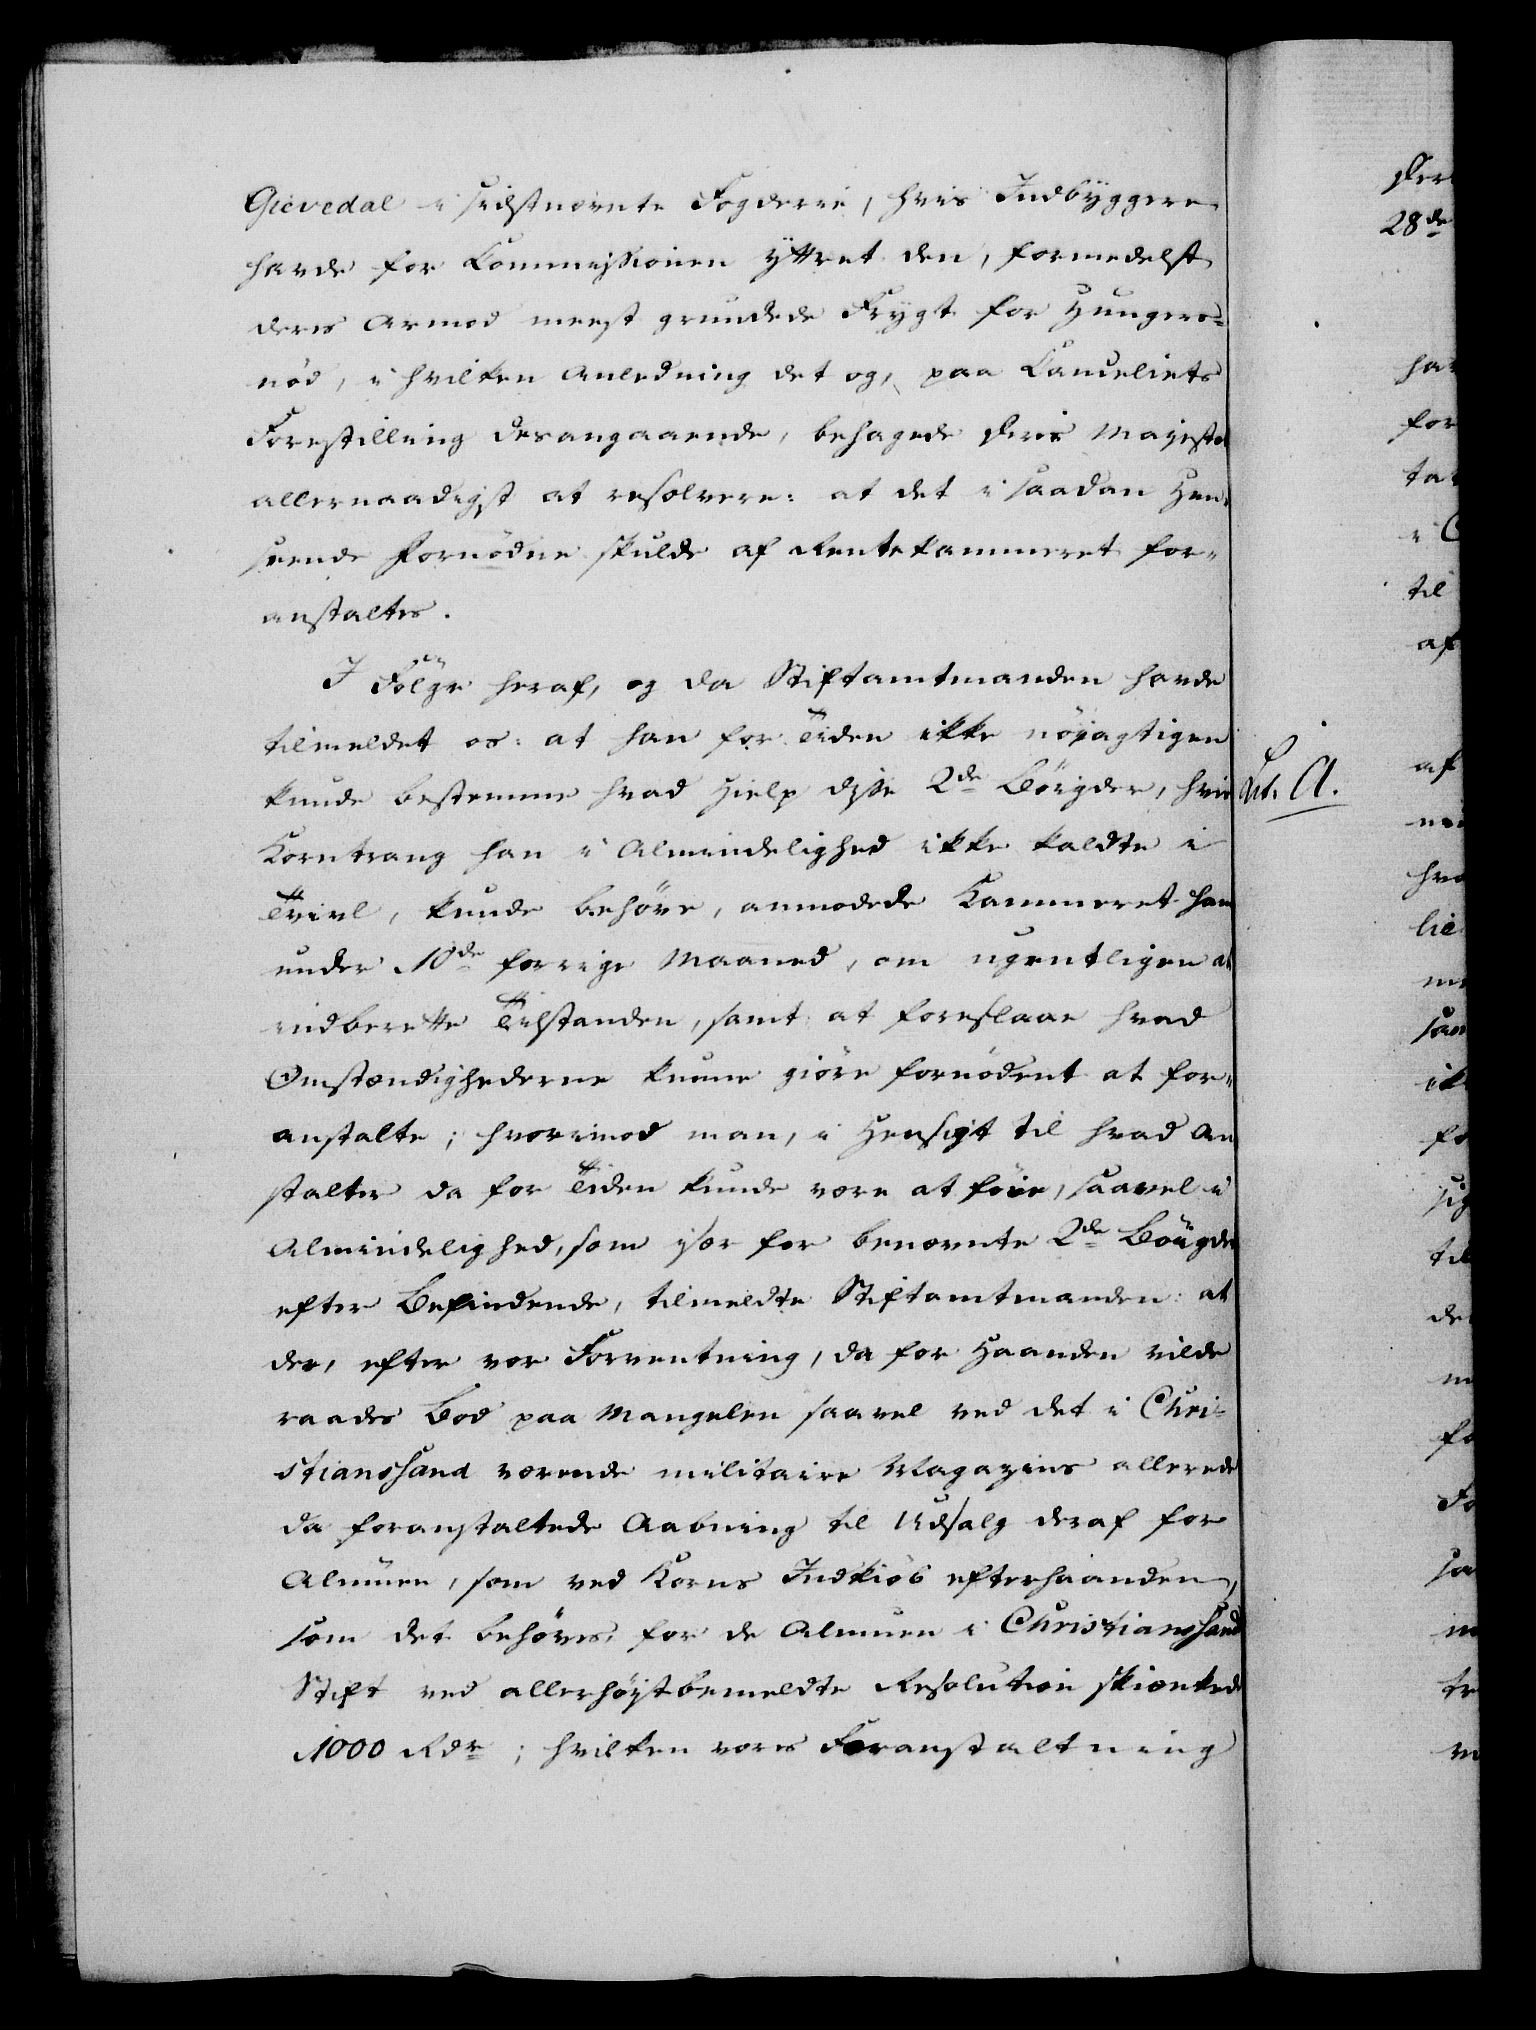 Gievedal i sidstnævnte Fogderie, hvis Indbyggere
havde for Commissionen yttret den, formedelst
deres Armod meest grundede Frygt for Hungers-
nöd, i hvilken Anledning det og, paa Canceliets
Forestilling desangaaende, behagede Deres Majestet
allernaadigst at resolvere: at det i saadan Hen-
seende fornödne skulde af Rentekammeret for-
anstaltes.
I Fölge heraf, og da Stiftamtmanden havde
tilmeldet os: at han for Tiden ikke nöjagtigen
kunde bestemme hvad Hielp disse 2de Böigder, hvis
Korntrang han i Almindelighed ikke kaldte i
Tvivl, kunde behöve, anmodede Kammeret ham
under 10de forrige Maaned, om ugentligen at
indberette Tilstanden, samt at foreslaae hvad
Omstændighederne kunne giöre fornödent at for-
anstalte; hvorimod man, i Hensigt til hvad An
stalter da for Tiden kunde være at föie, saavel i
Almindelighed, som især for benævnte 2de Böigder
efter Befindende, tilmeldte Stiftamtmanden: at
der, efter vor Forventning, da for Haanden vilde
raades Bod paa Mangelen saavel ved det i Chri-
stianssand værende militaire Magazins allerede
da foranstaltede Aabning til Udsalg deraf for
Almuen, som ved Korns Indkiöb efterhaanden,
som det behöves, for de Almuen i Christianssand
Stift ved allerhöistbemeldte Resolution skienkede
1000 Rdr; hvilken vores Foranstaltning
Lit. A.
28de
til
af
af